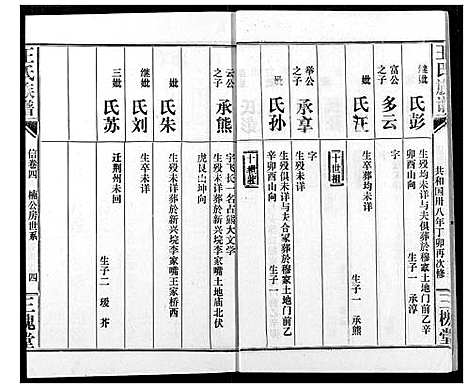 王氏族譜
共和国卅八年丁卯再次修
三槐堂
继妣
氏彭
生殁未详与夫俱葬於穆家土地门前乙辛
卯酉山向
生子一 承淳
富公之子
多云
字
妣
氏汪
生卒葬均未详
生子一 承熊
十世祖
举公之子
承享
字
妣
氏孙
生殁俱未详与夫合冢葬於穆家土地门前乙辛
卯酉山向
生子一
云公之子
承熊
字飞长一名占熊大文学
生殁未详葬於新兴垸李家嘴土地庙北伏
虎艮山坤向
妣
氏朱
生殁未详葬於新兴垸李家嘴王家桥西
继妣
氏刘
生卒未详
三妣
氏苏
迁荆州未回
生子二 瑗 芥
王氏族譜
信卷四
楠公房世系
四
三槐堂